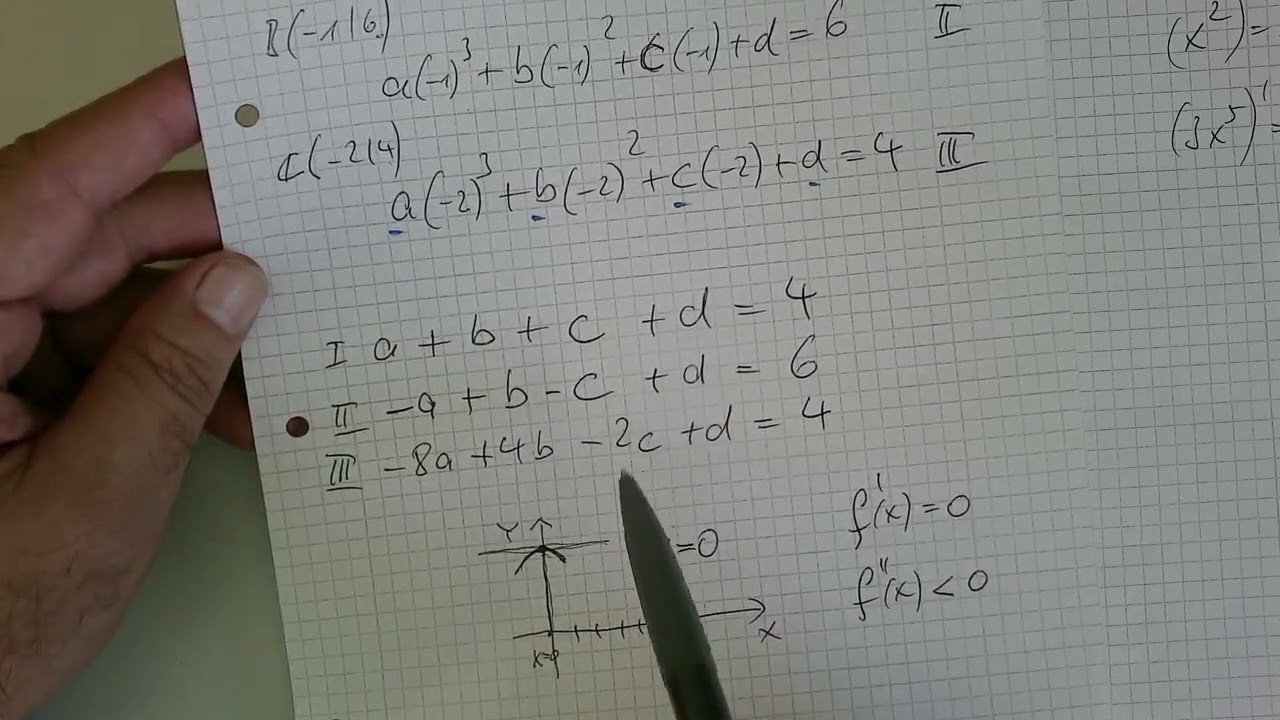 B(-1|6)
a(-1)³+b(-1)²+c(-1)+d=6 II
(x²)=
C(-2|4)
a(-2)³+b(-2)²+c(-2)+d=4 III
(3x⁵)'=
I a+b+c+d=4
II -a+b-c+d=6
III -8a+4b-2c+d=4
f'(x)=0
Y
=0
f''(x)<0
X